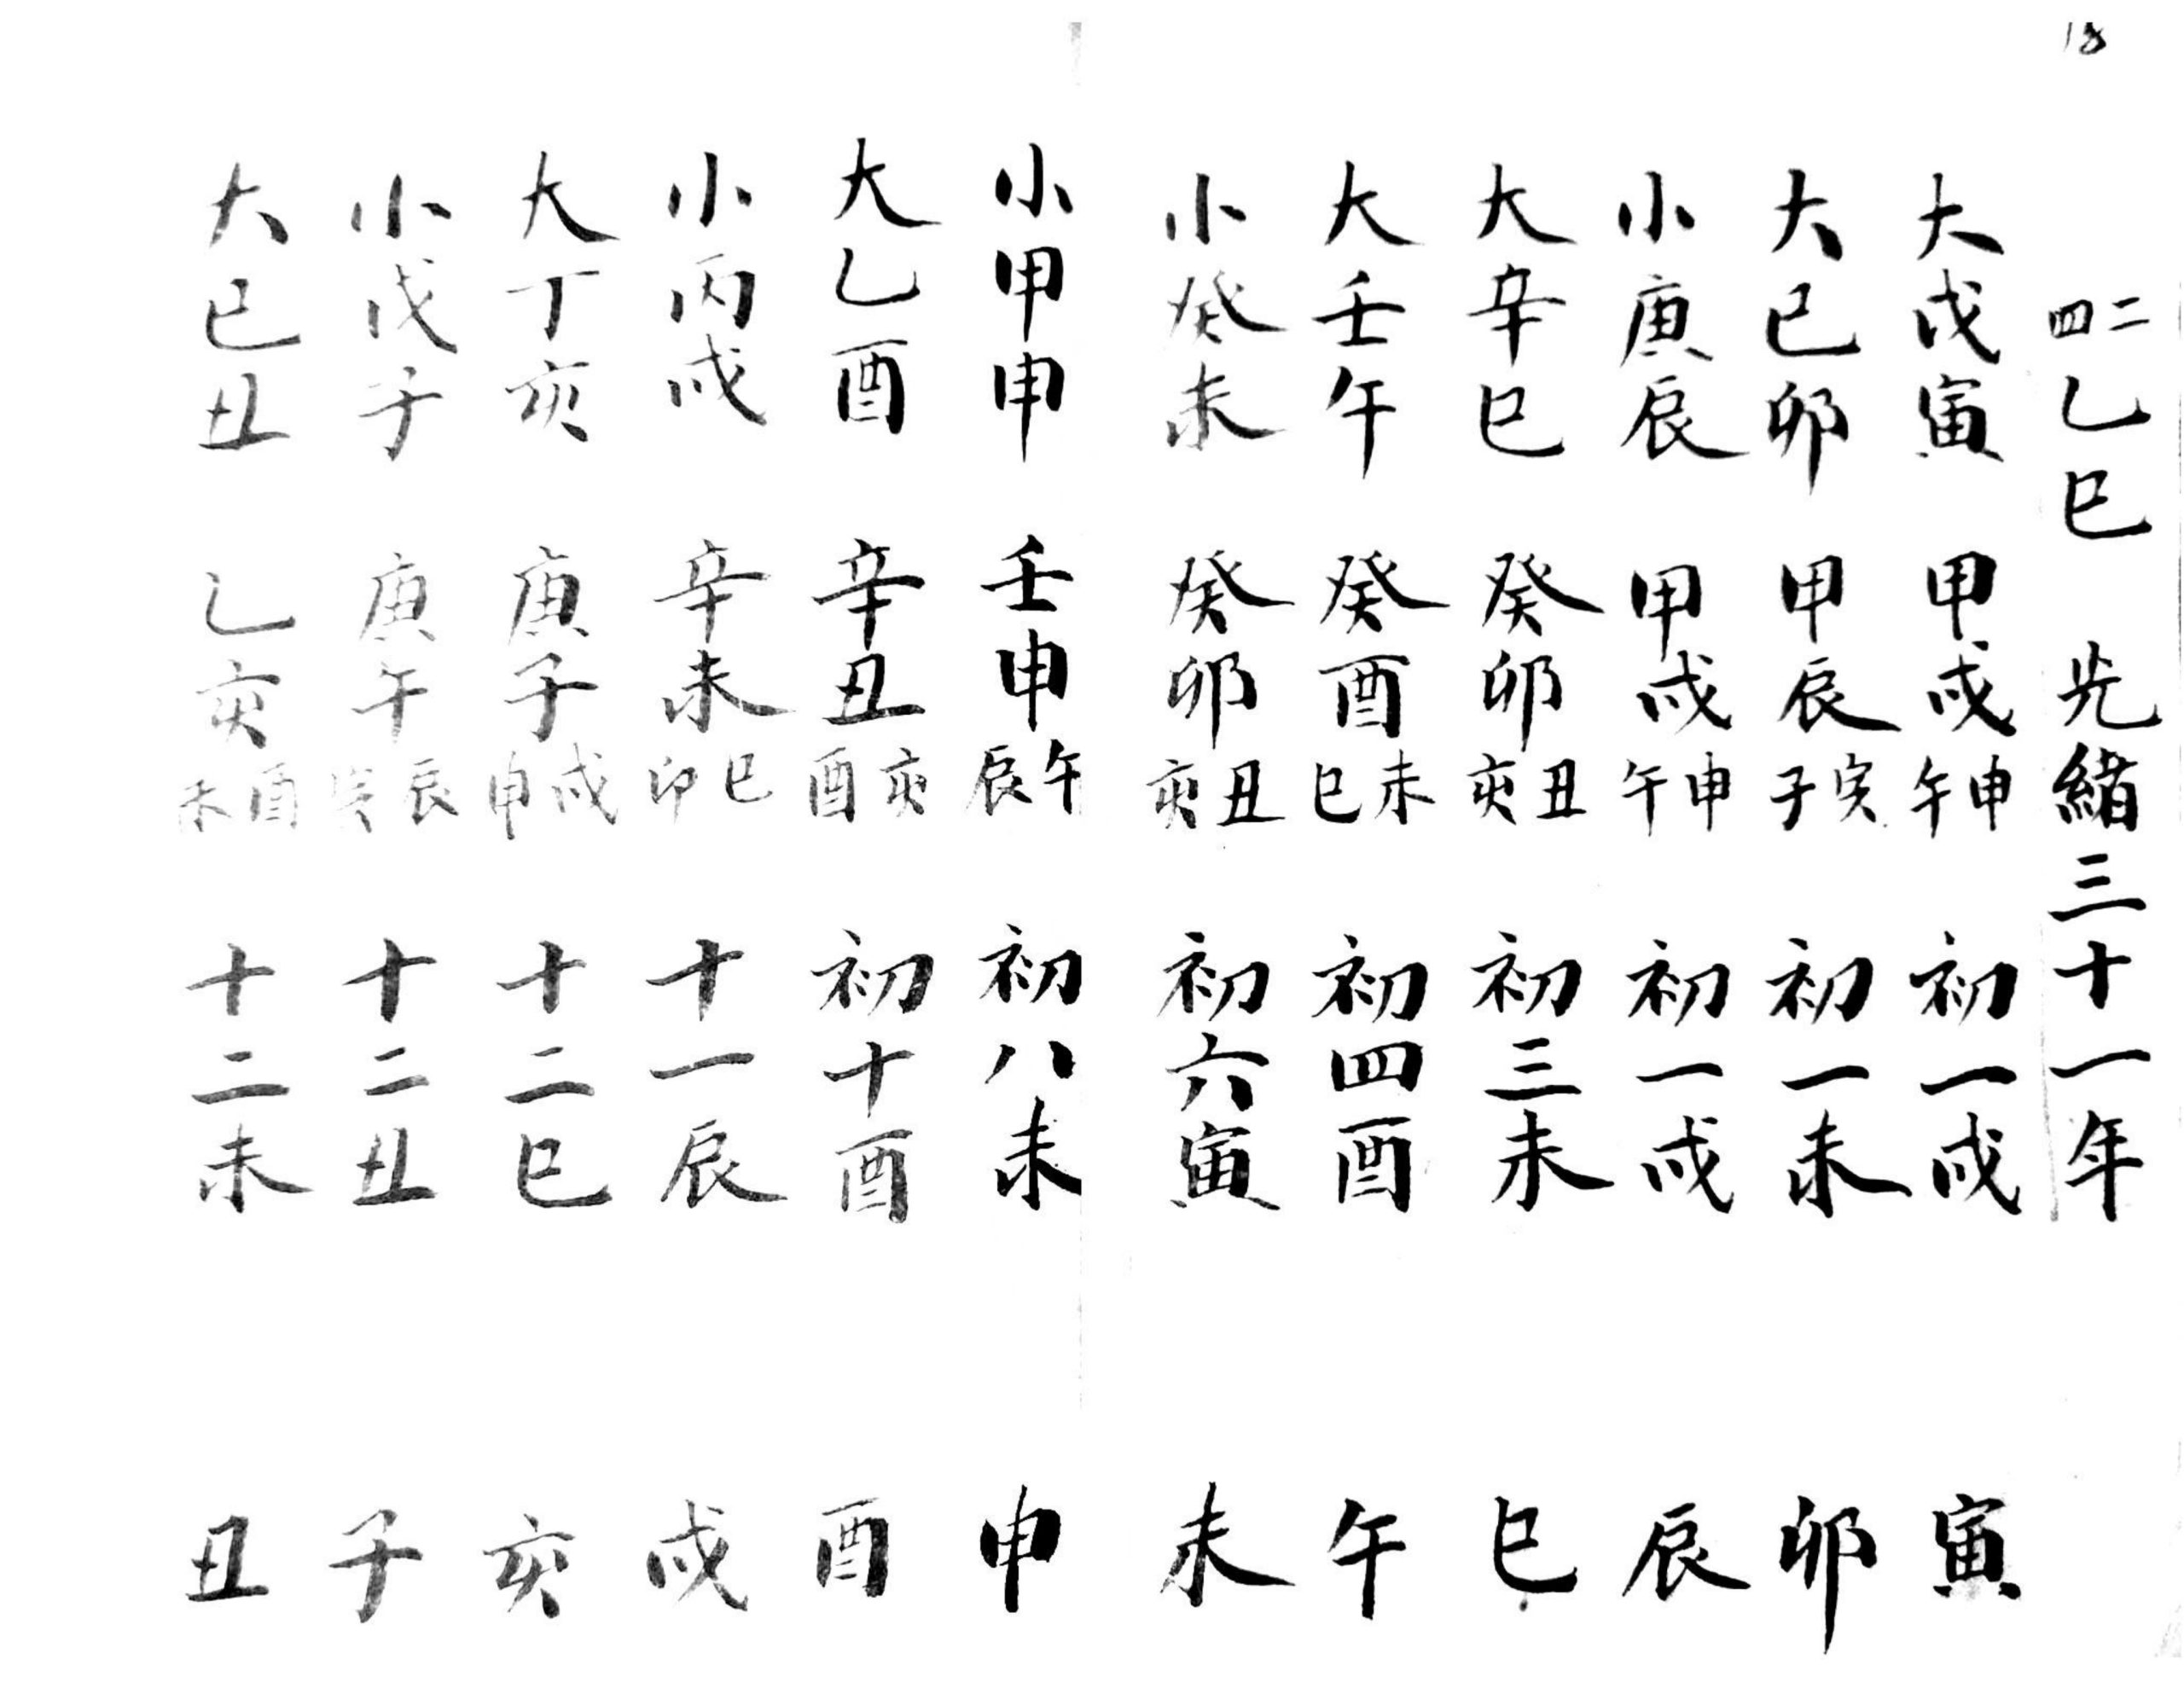 18
二四 乙巳 光緒三十一年
大戊寅 甲戌 申午 初一戌 寅
大己卯 甲辰 寅子 初一未 卯
小庚辰 甲戌 申午 初一戌 辰
大辛巳 癸卯 丑亥 初三未 巳
大壬午 癸酉 未巳 初四酉 午
小癸未 癸卯 丑亥 初六寅 未
小甲申 壬申 午辰 初八未 申
大乙酉 辛丑 亥酉 初十酉 酉
小丙戌 辛未 巳卯 十一辰 戌
大丁亥 庚子 戌申 十二巳 亥
小戊子 庚午 辰寅 十二丑 子
大己丑 乙亥 酉未 十二未 丑